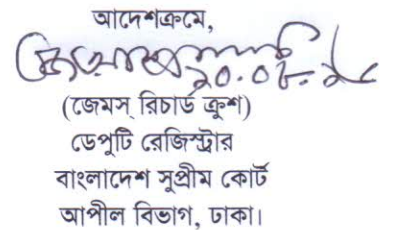 আদেশক্রমে,
২০.০৮.১৮
(জেমস্ রিচার্ড ক্রুশ)
ডেপুটি রেজিস্ট্রার
বাংলাদেশ সুপ্রীম কোর্ট
আপীল বিভাগ, ঢাকা।